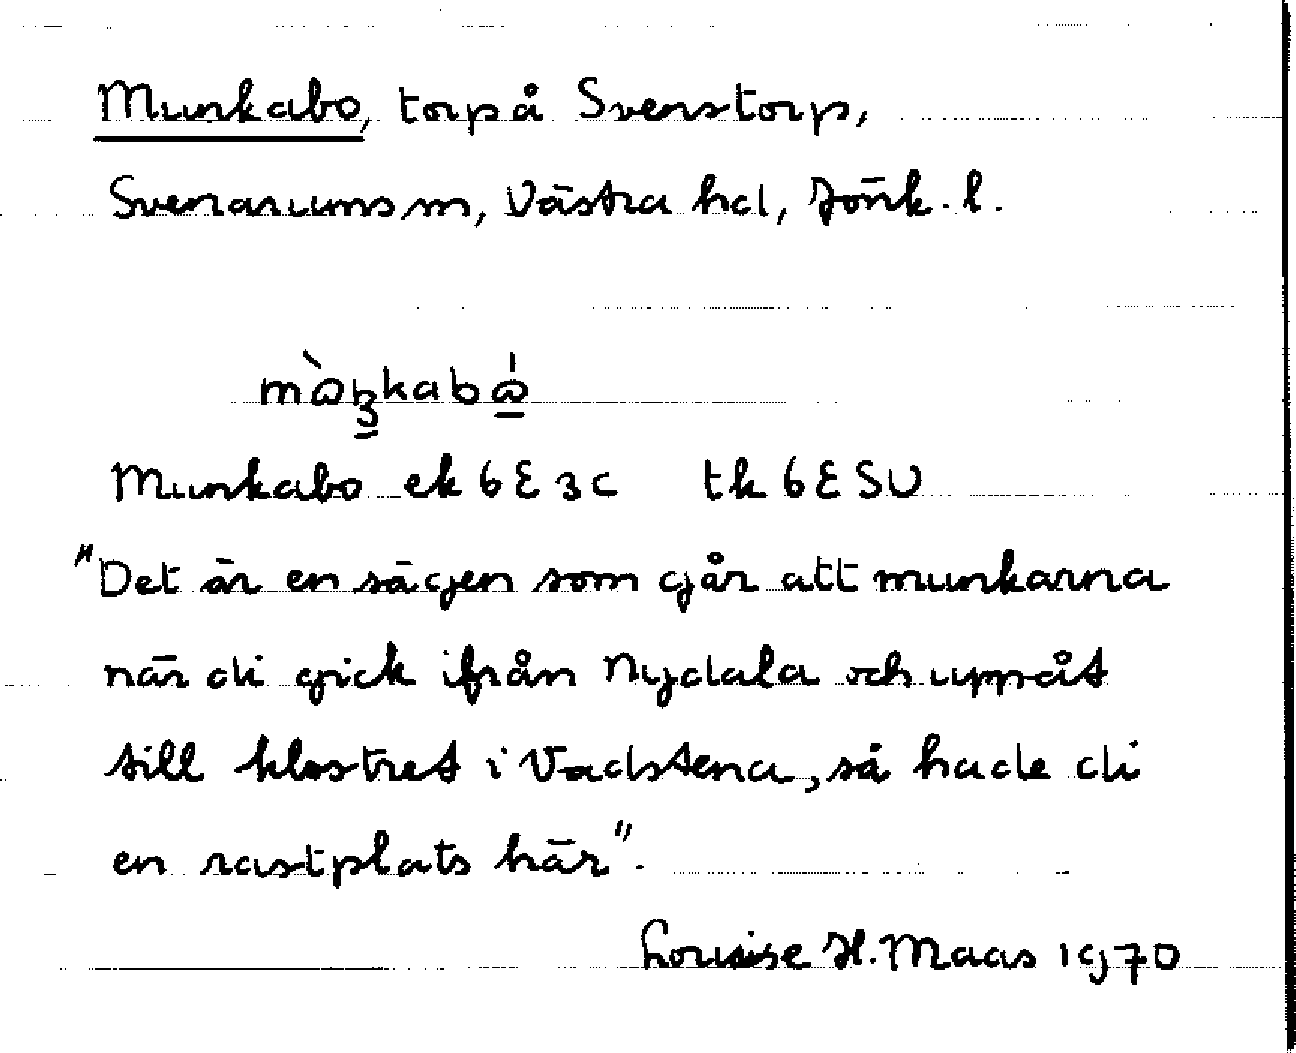 Munkabo, torp å Svenstorp,
Svenarums sn, Västra hd, Jönk. l.
Munkabo ek 6E 3c tk 6E SV
"Det är en sägen som går att munkarna
när di gick ifrån Nydala och uppåt
till klostret i Vadstena, så hade di
en rastplats här".
Louise H. Maas 1970